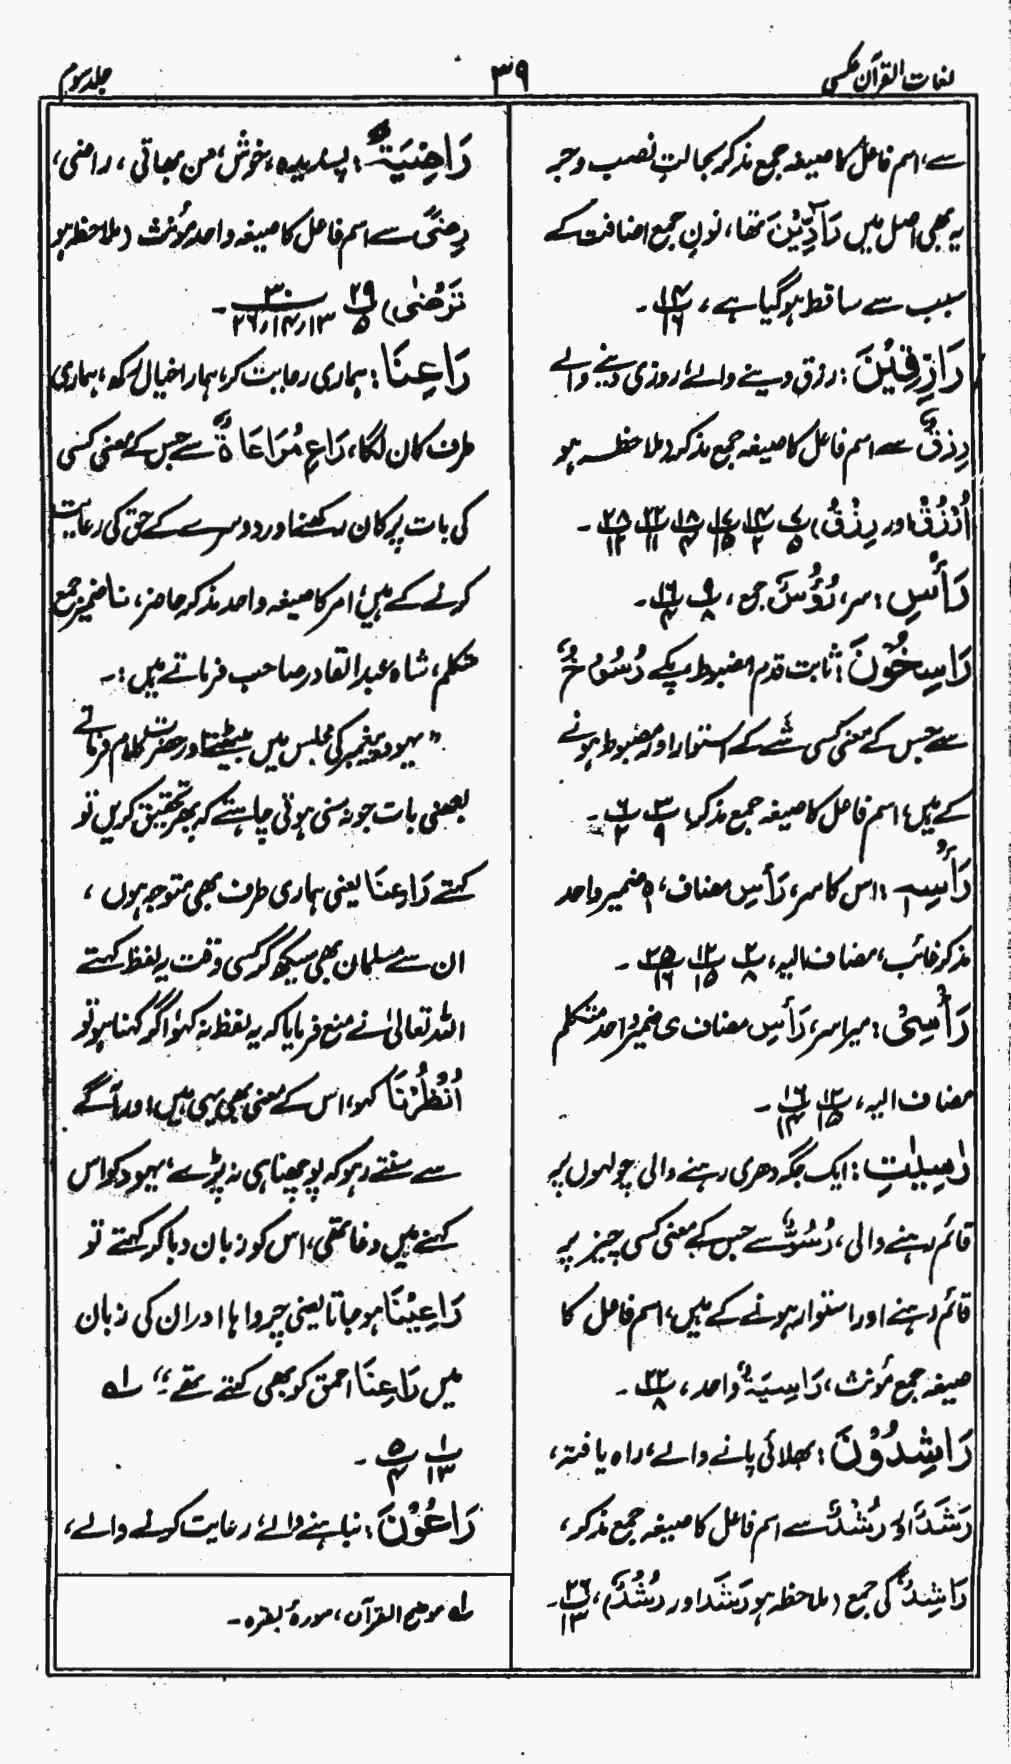 لغات القرآن عکسی
۳۹
جلد سوم
سے، اسم فاعل کا صیغہ جمع مذکر بحالتِ نصب و جر
یہ بھی اصل میں رَآدِّیْنَ تھا، نونِ جمع اضافت کے
سبب سے ساقط ہوگیا ہے، ۱۴/۱۶۔
رَازِقِیْنَ: رزق دینے والے، روزی دینے والے
رِزْقٌ سے اسم فاعل کا صیغہ جمع مذکر (ملاحظہ ہو
اُرْزُقْ اور رِزْقٌ) ۷/۵ ۱۴/۲ ۱۷/۱۵ ۱۸/۴ ۲۲/۱۱ ۲۸/۱۲۔
رَأْسِ: سر، رُؤُسٌ جمع، ۹/۸ ۱۶/۴۔
رَاسِخُوْنَ: ثابت قدم، مضبوط، پکے رُسُوْخٌ
سے جس کے معنی کسی شے کے استوار اور مضبوط ہونے
کے ہیں، اسم فاعل کا صیغہ جمع مذکر، ۳/۹ ۶/۲۔
رَأْسِہٖ: اس کا سر، رَأْسِ مضاف، ہٖ ضمیر واحد
مذکر غائب، مضاف الیہ، ۲/۸ ۱۲/۱۵ ۲۵/۱۶۔
رَأْسِیْ: میرا سر، رَأْسِ مضاف ی ضمیر واحد متکلم
مضاف الیہ، ۱۲/۱۵ ۱۶/۱۴۔
رٰسِیٰتٍ: ایک جگہ دھری رہنے والی چولہوں پر
قائم رہنے والی، رُسُوٌّ سے جس کے معنی کسی چیز پر
قائم رہنے اور استوار ہونے کے ہیں، اسم فاعل کا
صیغہ جمع مؤنث، رَاسِیَۃٌ واحد، ۲۲/۸۔
رَاشِدُوْنَ: بھلائی پانے والے، راہ یافتہ،
رَشَدٌ اور رُشْدٌ سے اسم فاعل کا صیغہ جمع مذکر،
رَاشِدٌ کی جمع (ملاحظہ ہو رَشَدٌ اور رُشْدٌ)، ۲۶/۱۳۔
رَاضِیَۃً: پسندیدہ، خوش، من بھاتی، راضی،
رِضًی سے اسم فاعل کا صیغہ واحد مؤنث (ملاحظہ ہو
تَرْضٰی) ۲۹/۵ ۳۰/۱۳،۱۴،۲۶۔
رَاعِنَا: ہماری رعایت کر، ہمارا خیال رکھ، ہماری
طرف کان لگا، رَاعِ مُرَاعَاۃٌ سے جس کے معنی کسی
کی بات پر کان رکھنا اور دوسرے کے حق کی رعایت
کرنے کے ہیں، امر کا صیغہ واحد مذکر حاضر، نا ضمیر جمع
متکلم، شاہ عبدالقادر صاحب فرماتے ہیں:۔
”یہود پیغمبر کی مجلس میں بیٹھتے اور حضرت کلام فرماتے
بعضی بات جو نہ سنی ہوتی چاہتے کہ پھر تحقیق کریں تو
کہتے رَاعِنَا یعنی ہماری طرف بھی متوجہ ہوں،
ان سے مسلمان بھی سیکھ کر کسی وقت یہ لفظ کہتے
اللہ تعالیٰ نے منع فرمایا کہ یہ لفظ نہ کہو، اگر کہنا ہو تو
اُنْظُرْنَا کہو، اس کے معنی بھی یہی ہیں اور آگے
سے سنتے رہو کہ پوچھنا ہی نہ پڑے، یہود کو اس
کہنے میں دغا تھی، اس کو زبان دبا کر کہتے تو
رَاعِیْنَا ہو جاتا یعنی چرواہا اور ان کی زبان
میں رَاعِنَا احمق کو بھی کہتے تھے۔“ لہ
۱/۱۳ ۵/۴۔
رَاعُوْنَ: نباہنے والے، رعایت کرنے والے،
لہ موضح القرآن، سورۂ بقرہ۔